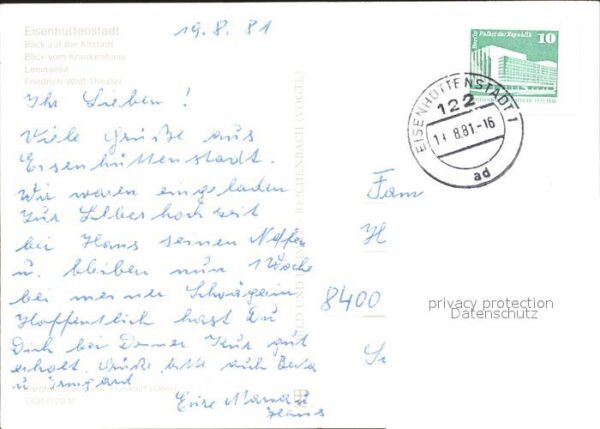 Eisenhüttenstadt
Blick auf die Altstadt
Blick vom Krankenhaus
Leninallee
Friedrich-Wolf-Theater
19.8.81
Ihr Lieben!
Viele Grüße aus
Eisenhüttenstadt.
Wir waren eingeladen
zur Silberhochzeit
bei Hans seinen Neffen
u. bleiben nun 1 Woche
bei meiner Schwägerin
Hoffentlich hast Du
Dich bei Deiner Kur gut
erholt. Grüße bitte auch
u Irmgard
Eure Mama u
Hans
DDR 0,20 M
REICHENBACH (VOGTL)
BILD UND
Berlin, Palast der Republik
10
EISENHÜTTENSTADT 1
122
8.81.-16
ad
Fam
H
8400
privacy protection
Datenschutz